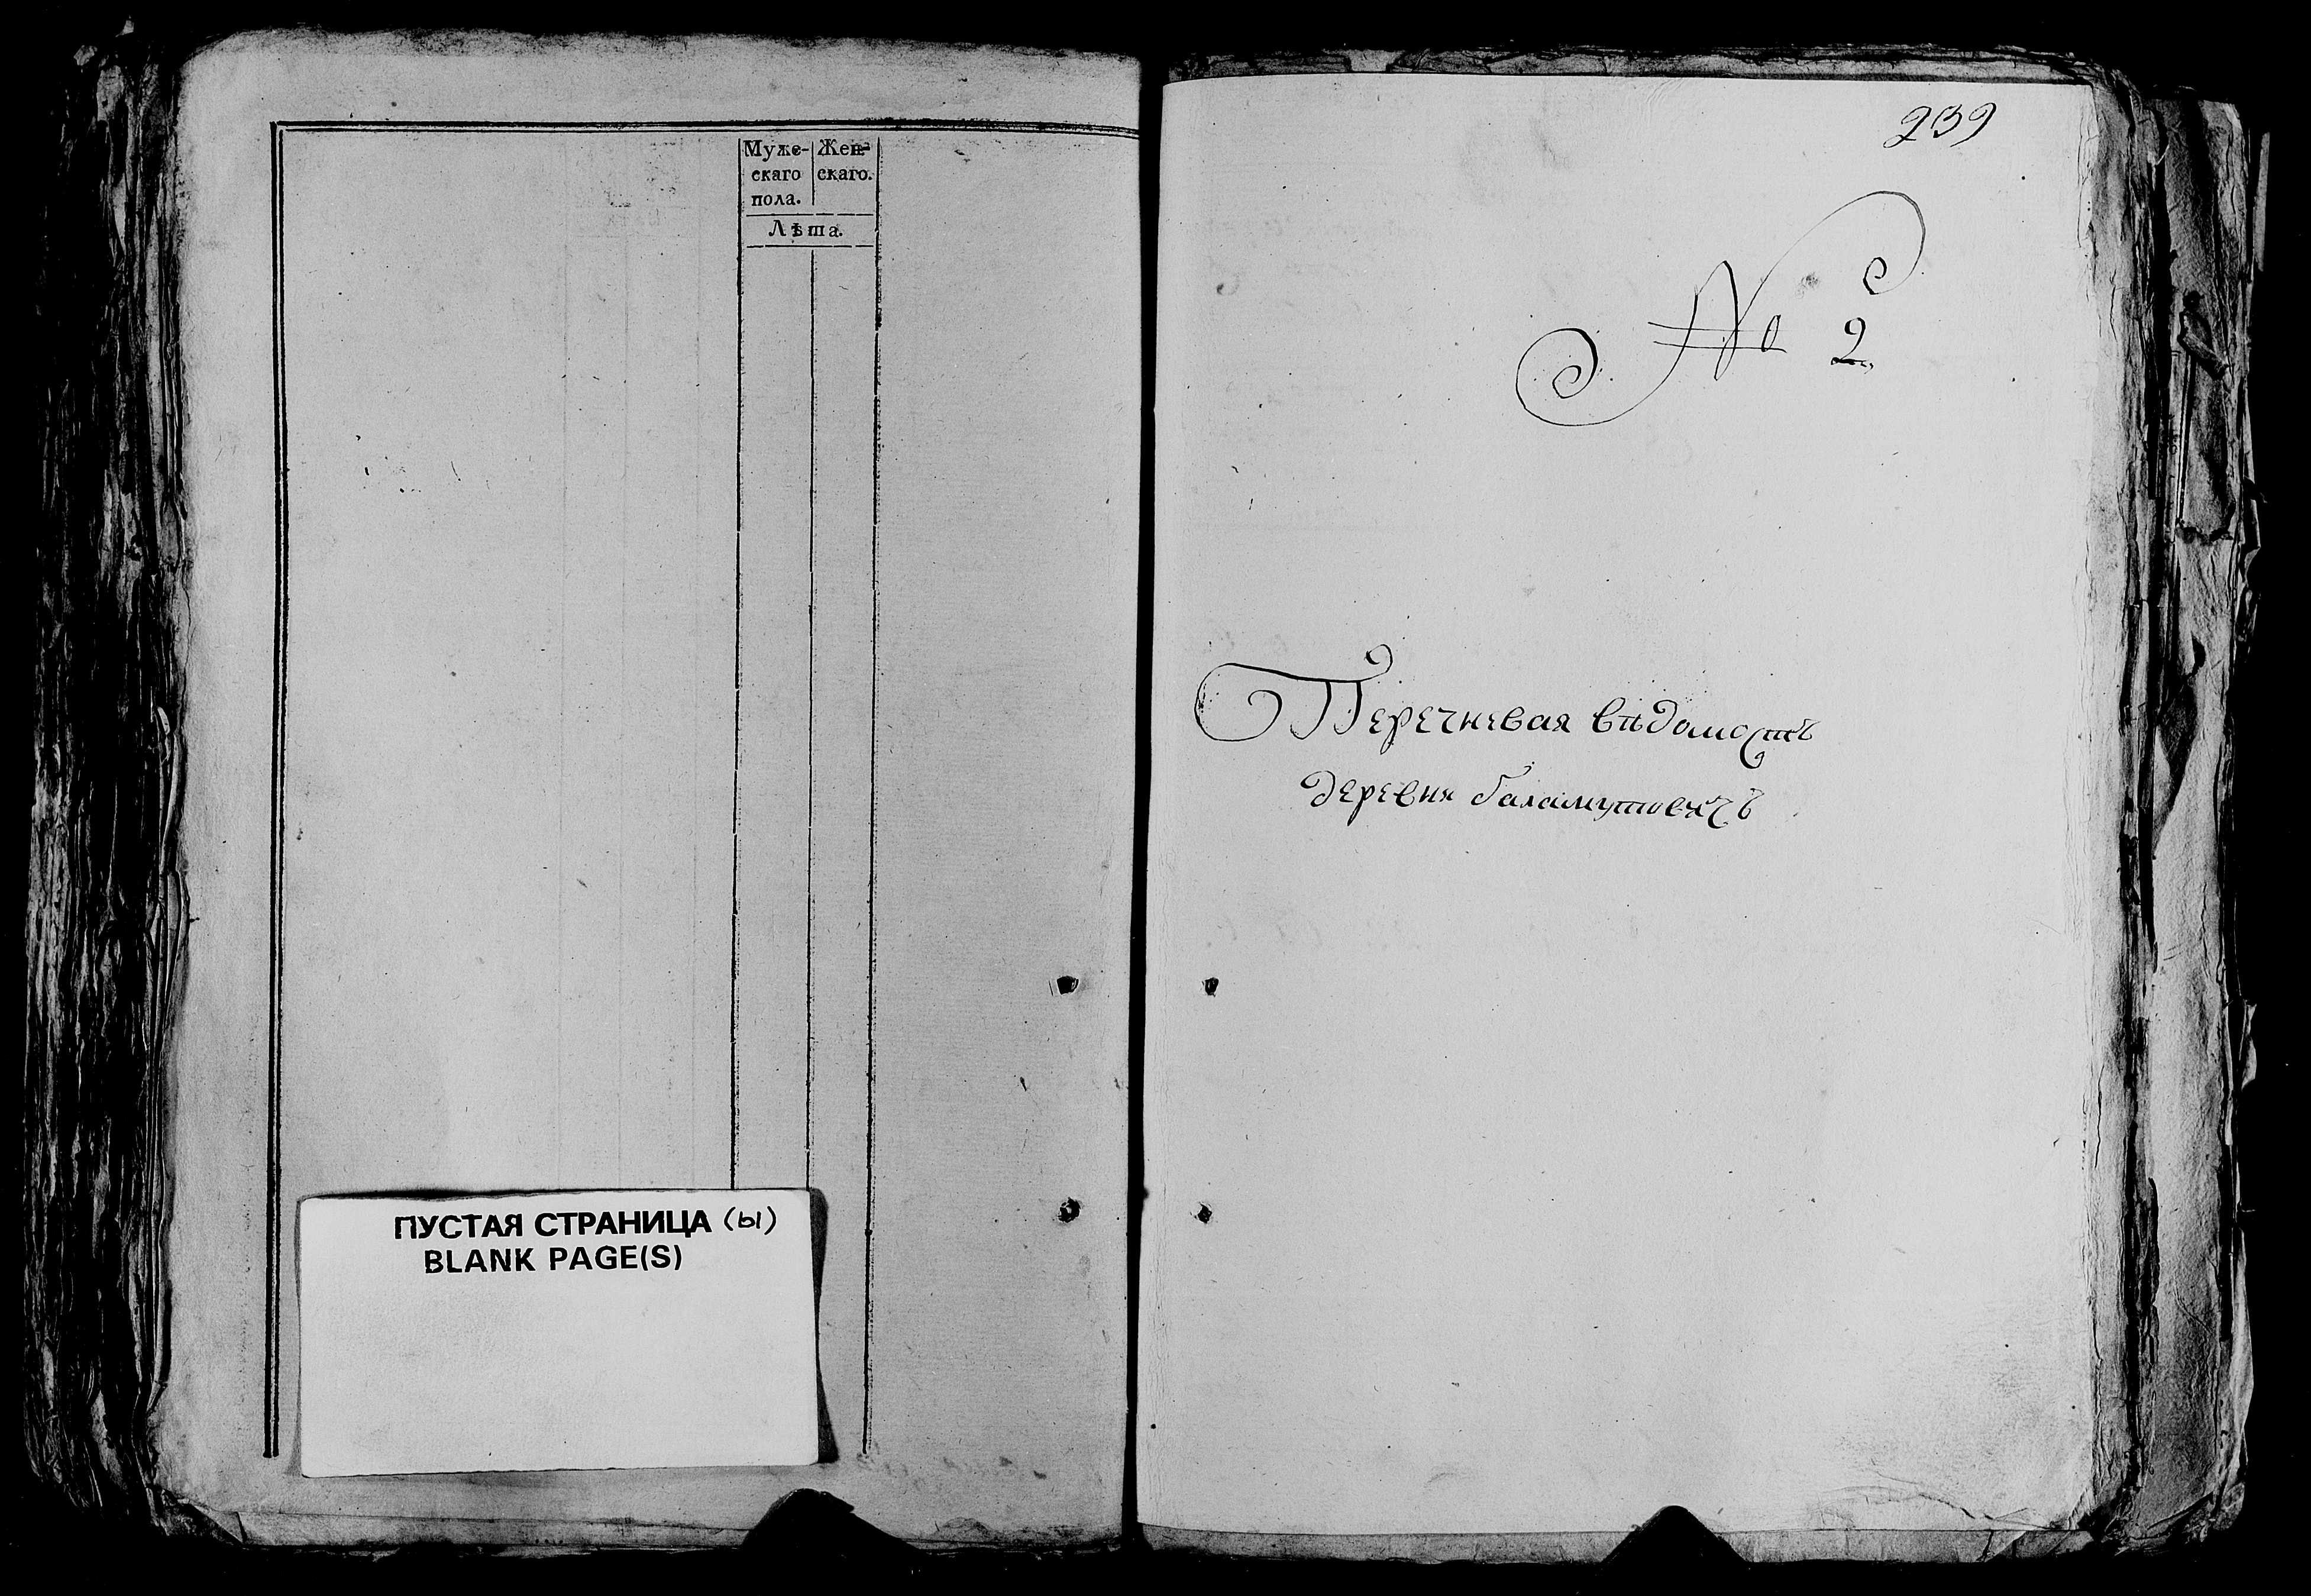 Муже- Жен-
скаго скаго.
пола.
Лѣта.
ПУСТАЯ СТРАНИЦА (ы)
BLANK PAGE(S)
239
No 2
Перечневая вѣдомость
деревня баламутовкѣ